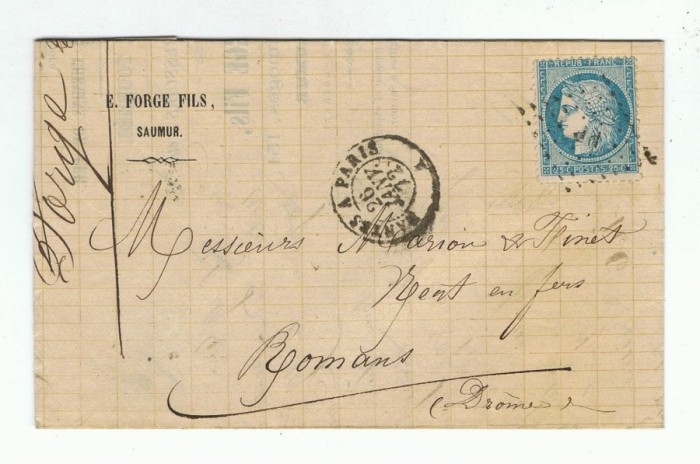 E. FORGE FILS,
SAUMUR.
Forge
REPUB. FRANC.
25 C. POSTES 25 C.
NANTES A PARIS
26
JANV
72
Messieurs A. Marion & Finet
Negt en fers
Romans
(Drôme)